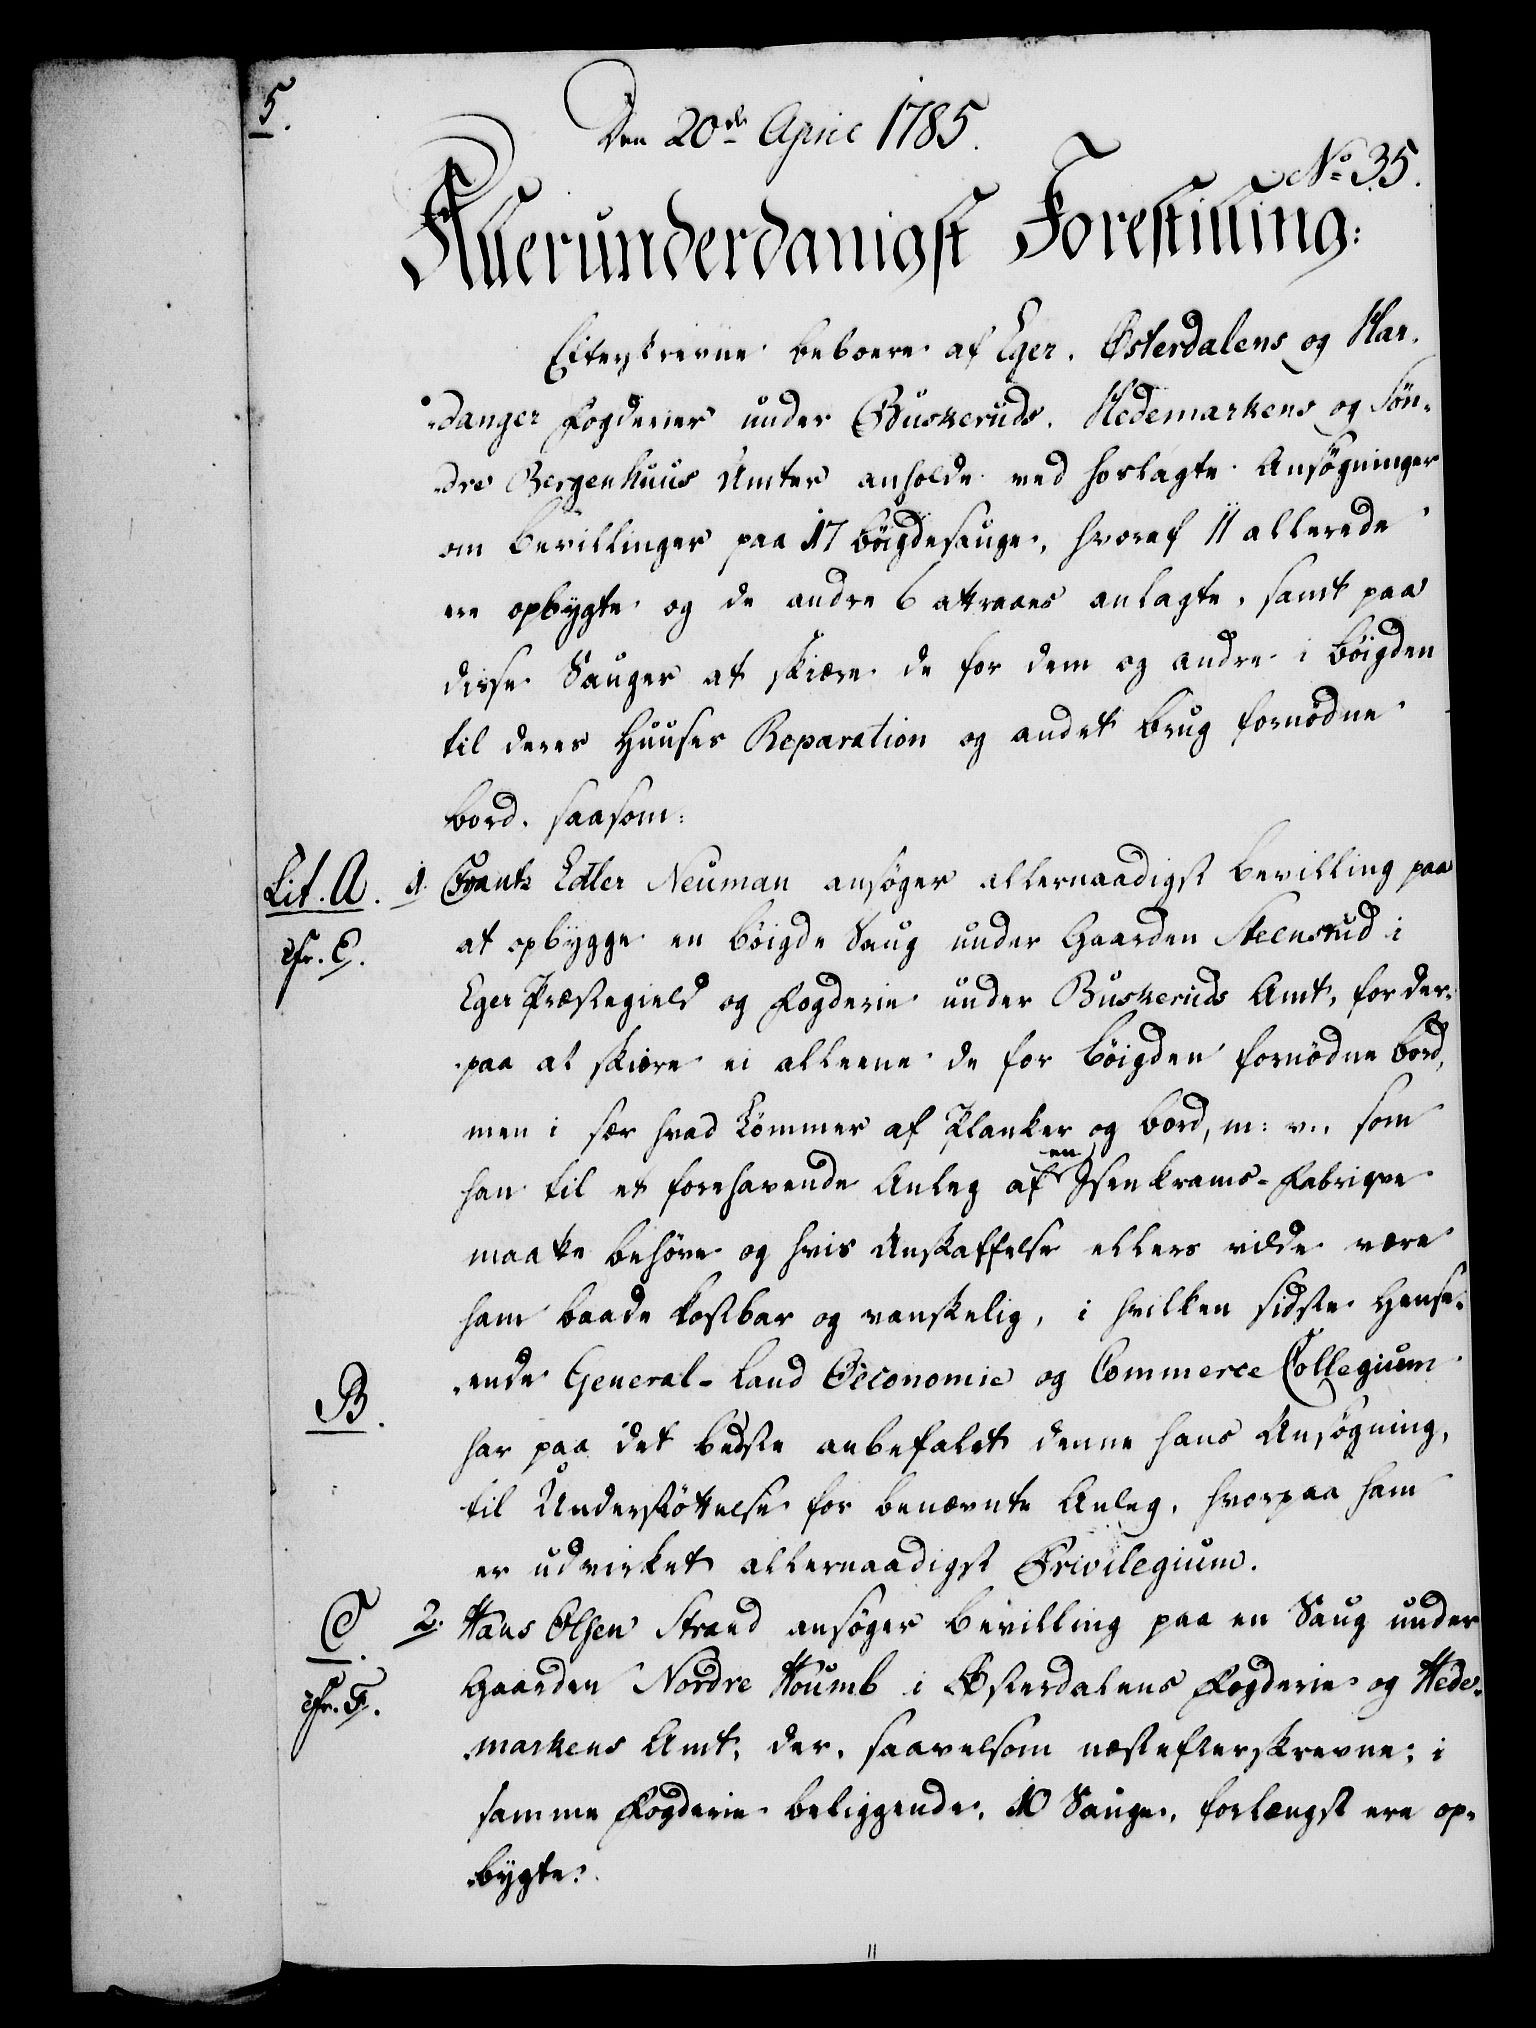 5.
Den 20de April 1785.
No 35.
Allerunderdanigst Forestilling:
Efterskrevne beboere af Eger, Østerdalens og Har-
danger Fogderier under Buskeruds, Hedemarkens og Søn-
dre Bergenhuus Amter anholde ved hoslagte Ansøgninger
om bevillinger paa 17 bøigdesauge, hvoraf 11 allerede
ere opbygte og de andre 6 attraaes anlagte, samt paa
disse Sauger at skiære de for dem og andre i bøigden
til deres Huuses Reparation og andet brug fornødne
bord, saasom:
Lit. A. 1. Frantz Edler Neuman ansøger allernaadigst bevilling paa
cfr. E. at opbygge en bøigde Saug under Gaarden Steensrud i
Eger Præstegield og Fogderie under Buskeruds Amt, for der-
paa at skiære ei alleene de for bøigden fornødne bord,
men i sær hvad Tømmer af Planker og bord, m: v., som
han til et forehavende Anleg af en Isenkrams-Fabriqve
maatte behøve og hvis Anskaffelse ellers vilde være
ham baade kostbar og vanskelig, i hvilken sidste Hense-
ende General-Land Oeconomie og Commerce Collegium
B.
har paa det bedste anbefalet denne hans Ansøgning,
til Understøttelse for benævnte Anleg, hvorpaa ham
er udvirket allernaadigst Privilegium.
C. 2. Hans Olsen Strand ansøger bevilling paa en Saug under
cfr. F. Gaarden Nordre Houmb i Østerdalens Fogderie og Hede-
markens Amt, der, saavelsom næstefterskrevne, i
samme Fogderie beliggende, 10 Sauge, forlængst ere op-
bygte.